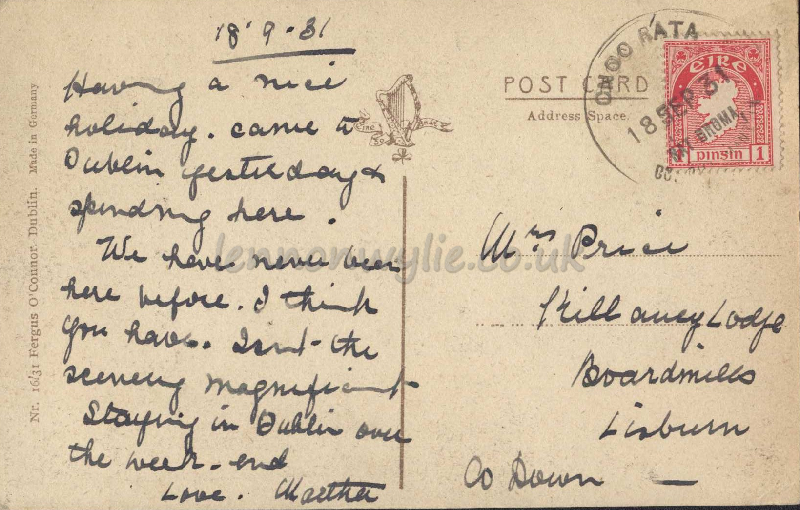 18.9.31
Having a nice
holiday. came to
Dublin yesterday &
spending here.
We have never been
here before. I think
you have. Isnt the
scenery magnificent
Staying in Dublin over
the week-end
Love. Martha
POST CARD
Address Space.
EIRE
pinsin 1
18 SEP 31
Mrs Price
Killaney Lodge
Boardmills
Lisburn
Co Down
Nr. 16/31 Fergus O'Connor. Dublin. Made in Germany
lennonwylie.co.uk